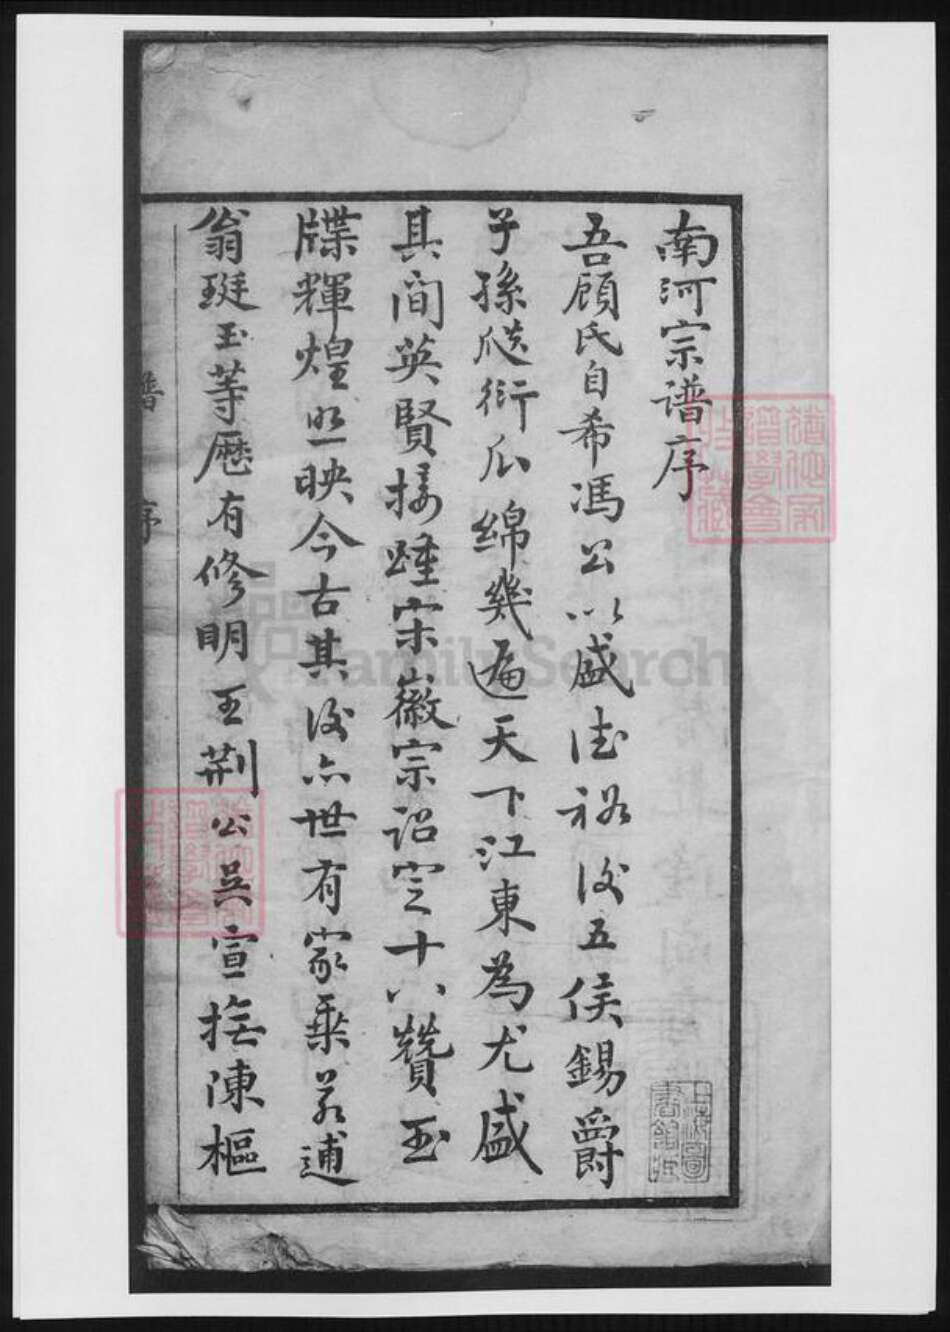 南河宗譜序
吾顧氏自希馮公以盛德裕後五侯錫爵
子孫瓞衍瓜綿幾遍天下江東為尤盛
其間英賢接踵宋徽宗詔定十八贊玉
牒輝煌照映今古其後亦世有家乘若逋
翁珽玉等歷有修明王荆公吳宣撫陳樞
譜序
上海圖書館藏
FamilySearch